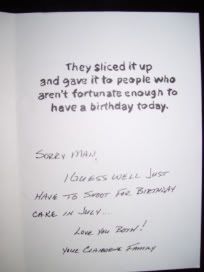 They sliced it up
and gave it to people who
aren't fortunate enough to
have a birthday today.
SORRY MAN,
I GUESS WELL JUST
HAVE TO SHOOT FOR BIRTHDAY
CAKE IN JULY...
LOVE YOU BOTH!
YOUR CLAIBORNE FAMILY